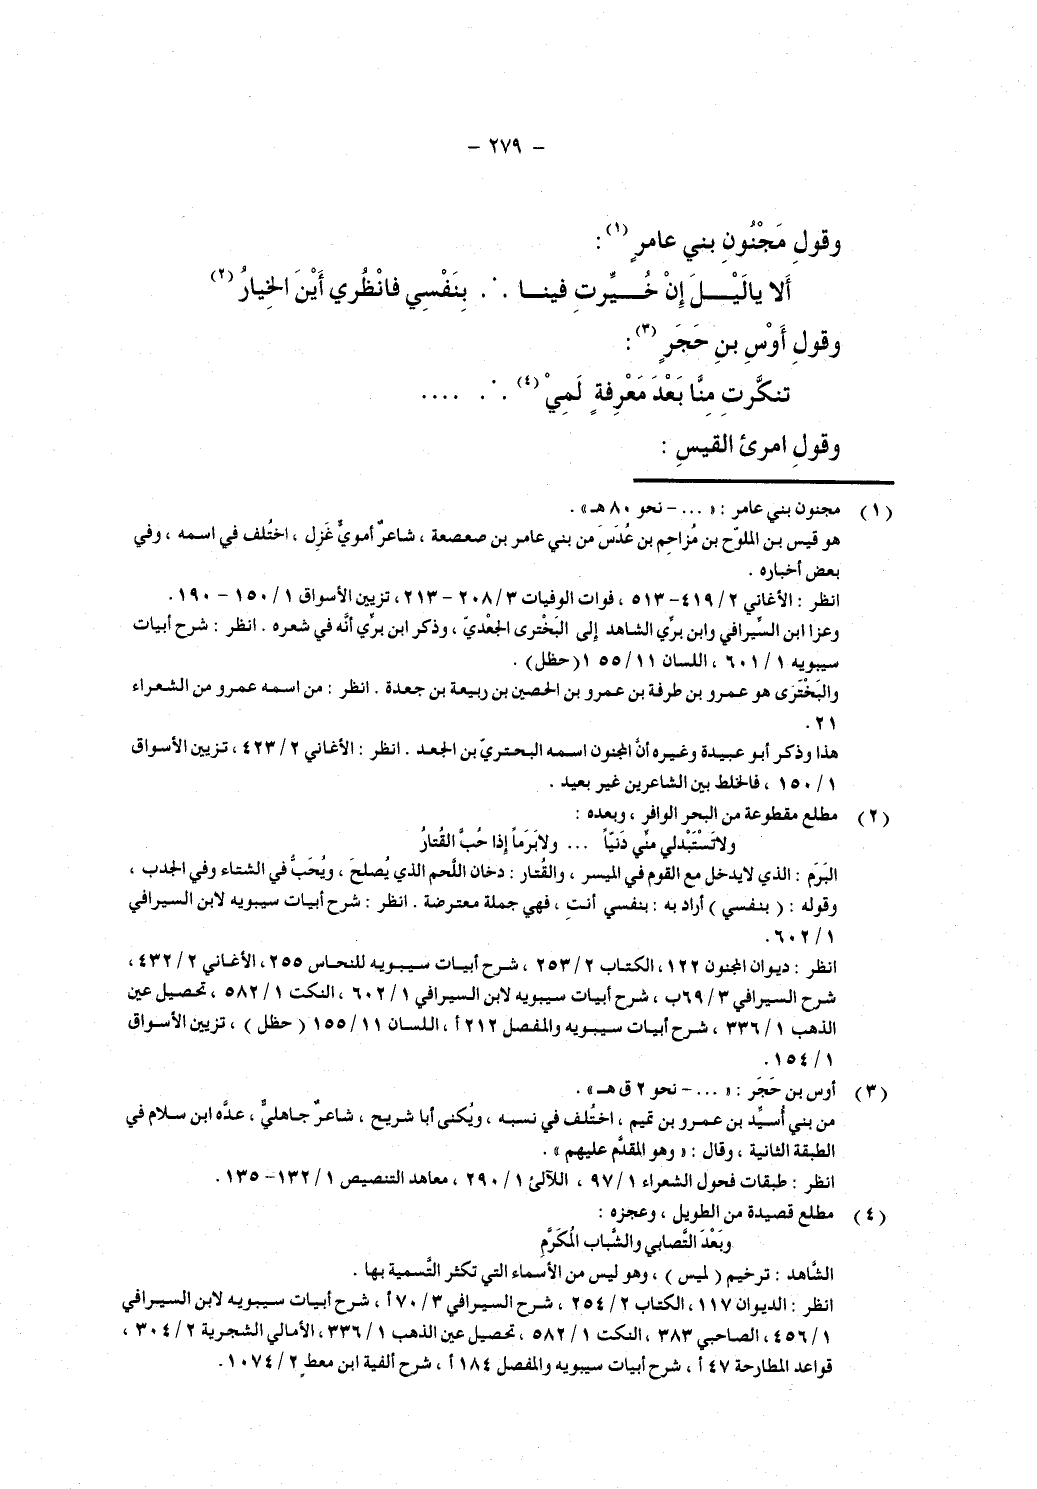 – ٢٧٩ –
وقولِ مَجْنُونِ بني عامرٍ (١) :
أَلا يالَيْـــلَ إِنْ خُـــيِّرتِ فينـا ∴ بِنَفْسِي فانْظُري أَيْنَ الخِيارُ (٢)
وقولِ أَوْسِ بنِ حَجَرٍ (٣) :
تنكَّرتِ مِنَّا بَعْدَ مَعْرِفةٍ لَمِيْ (٤) ∴ ....
وقولِ امرئ القيسِ :
(١) مجنون بني عامر : « ... – نحو ٨٠ هـ » .
هو قيس بن الملوّح بن مُزاحِم بن عُدَسَ من بني عامر بن صعصعة ، شاعرٌ أمويٌّ غَزِل ، اختُلف في اسمه ، وفي
بعض أخباره .
انظر : الأغاني ٢ /٤١٩– ٥١٣ ، فوات الوفيات ٣ /٢٠٨ – ٢١٣ ، تزيين الأسواق ١ /١٥٠ – ١٩٠ .
وعزا ابن السِّيرافي وابن برِّي الشاهد إلى البَخْترى الجعْديّ ، وذكر ابن برِّي أنَّه في شعره . انظر : شرح أبيات
سيبويه ١ / ٦٠١ ، اللسان ١١ /١٥٥ (حظل) .
والبَخْتَرَى هو عمرو بن طرفة بن عمرو بن الحصين بن ربيعة بن جعدة . انظر : من اسمه عمرو من الشعراء
٢١ .
هذا وذكر أبو عبيدة وغيره أنَّ المجنون اسمه البحتريّ بن الجعد . انظر : الأغاني ٢ / ٤٢٣ ، تزيين الأسواق
١ / ١٥٠ ، فالخلط بين الشاعرين غير بعيد .
(٢) مطلع مقطوعة من البحر الوافر ، وبعده :
ولاتَسْتَبْدلي منِّي دَنيّاً ... ولابَرَماً إذا حُبَّ القُتارُ
البَرَم : الذي لايدخل مع القوم في الميسر ، والقُتار : دخان اللَّحم الذي يُصلحَ ، ويُحَبُّ في الشتاء وفي الجدب ،
وقوله : ( بنفسي ) أراد به : بنفسي أنتِ ، فهي جملة معترضة . انظر : شرح أبيات سيبويه لابن السيرافي
١ / ٦٠٢ .
انظر : ديوان المجنون ١٢٢ ، الكتاب ٢ / ٢٥٣ ، شرح أبيات سيبويه للنحاس ٢٥٥ ، الأغاني ٢ / ٤٣٢ ،
شرح السيرافي ٣ / ٦٩ب ، شرح أبيات سيبويه لابن السيرافي ١ / ٦٠٢ ، النكت ١ / ٥٨٢ ، تحصيل عين
الذهب ١ / ٣٣٦ ، شرح أبيات سيبويه والمفصل ٢١٢ أ ، اللسان ١١ /١٥٥ ( حظل ) ، تزيين الأسواق
١ / ١٥٤ .
(٣) أوس بن حَجَر : « ... – نحو ٢ ق هـ » .
من بني أُسيِّد بن عمرو بن تميم ، اختُلف في نسبه ، ويُكنى أبا شريح ، شاعرٌ جاهليٌّ ، عدَّه ابن سلام في
الطبقة الثانية ، وقال : « وهو المقدَّم عليهم » .
انظر : طبقات فحول الشعراء ١ /٩٧ ، اللآلئ ١ / ٢٩٠ ، معاهد التنصيص ١ /١٣٢– ١٣٥ .
(٤) مطلع قصيدة من الطويل ، وعجزه :
وبَعْدَ التَّصابي والشَّبابِ المُكَرَّمِ
الشَّاهد : ترخيم ( لميس ) ، وهو ليس من الأسماء التي تكثر التَّسمية بها .
انظر : الديوان ١١٧ ، الكتاب ٢ / ٢٥٤ ، شرح السيرافي ٣ / ٧٠ أ ، شرح أبيات سيبويه لابن السيرافي
١ / ٤٥٦ ، الصاحبي ٣٨٣ ، النكت ١ / ٥٨٢ ، تحصيل عين الذهب ١ / ٣٣٦ ، الأمالي الشجرية ٢ / ٣٠٤ ،
قواعد المطارحة ٤٧ أ ، شرح أبيات سيبويه والمفصل ١٨٤ أ ، شرح ألفية ابن معطٍ ٢ / ١٠٧٤ .